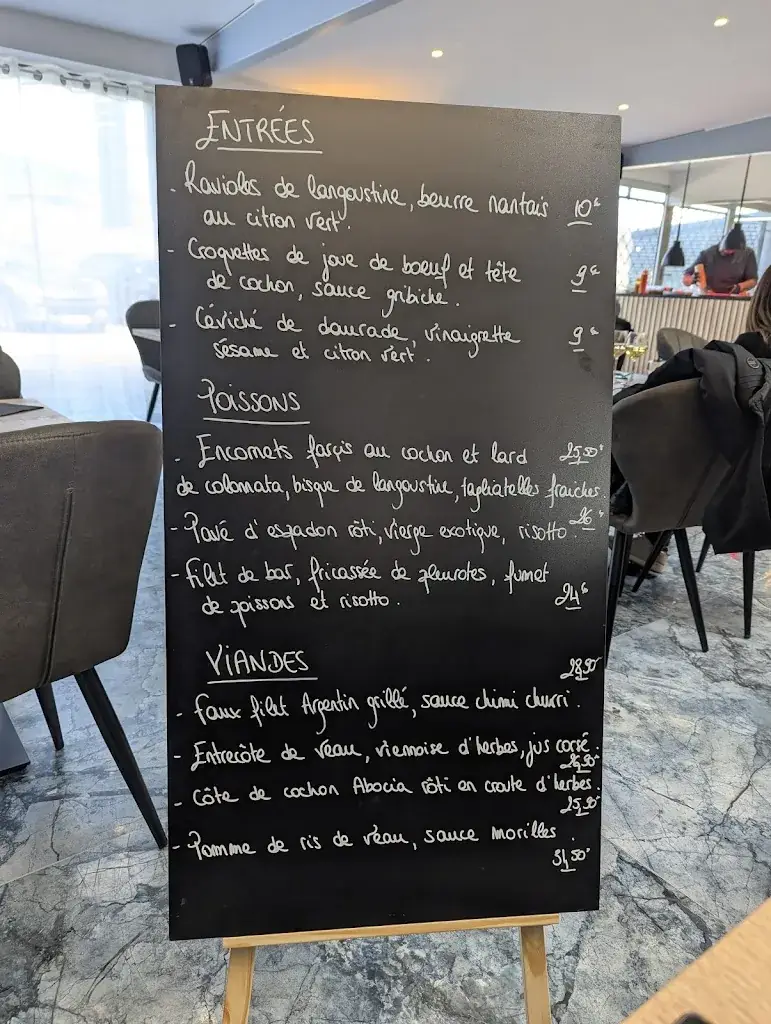 ENTRÉES
- Ravioles de langoustine, beurre nantais 10€
au citron vert.
- Croquettes de joue de boeuf et tête 9€
de cochon, sauce gribiche.
- Céviché de daurade, vinaigrette 9€
sésame et citron vert.
POISSONS
- Encornets farçis au cochon et lard 25,50€
de colonnata, bisque de langoustine, tagliatelles fraiches.
26€
- Pavé d'espadon rôti, vierge exotique, risotto.
- Filet de bar, fricassée de pleurotes, fumet
de poissons et risotto. 24€
VIANDES
28,50
- Faux filet Argentin grillé, sauce chimi churri.
- Entrecôte de veau, viennoise d'herbes, jus corsé.
26,50
- Côte de cochon Abocia rôti en croute d'herbes.
25,50
- Pomme de ris de veau, sauce morilles.
31,50